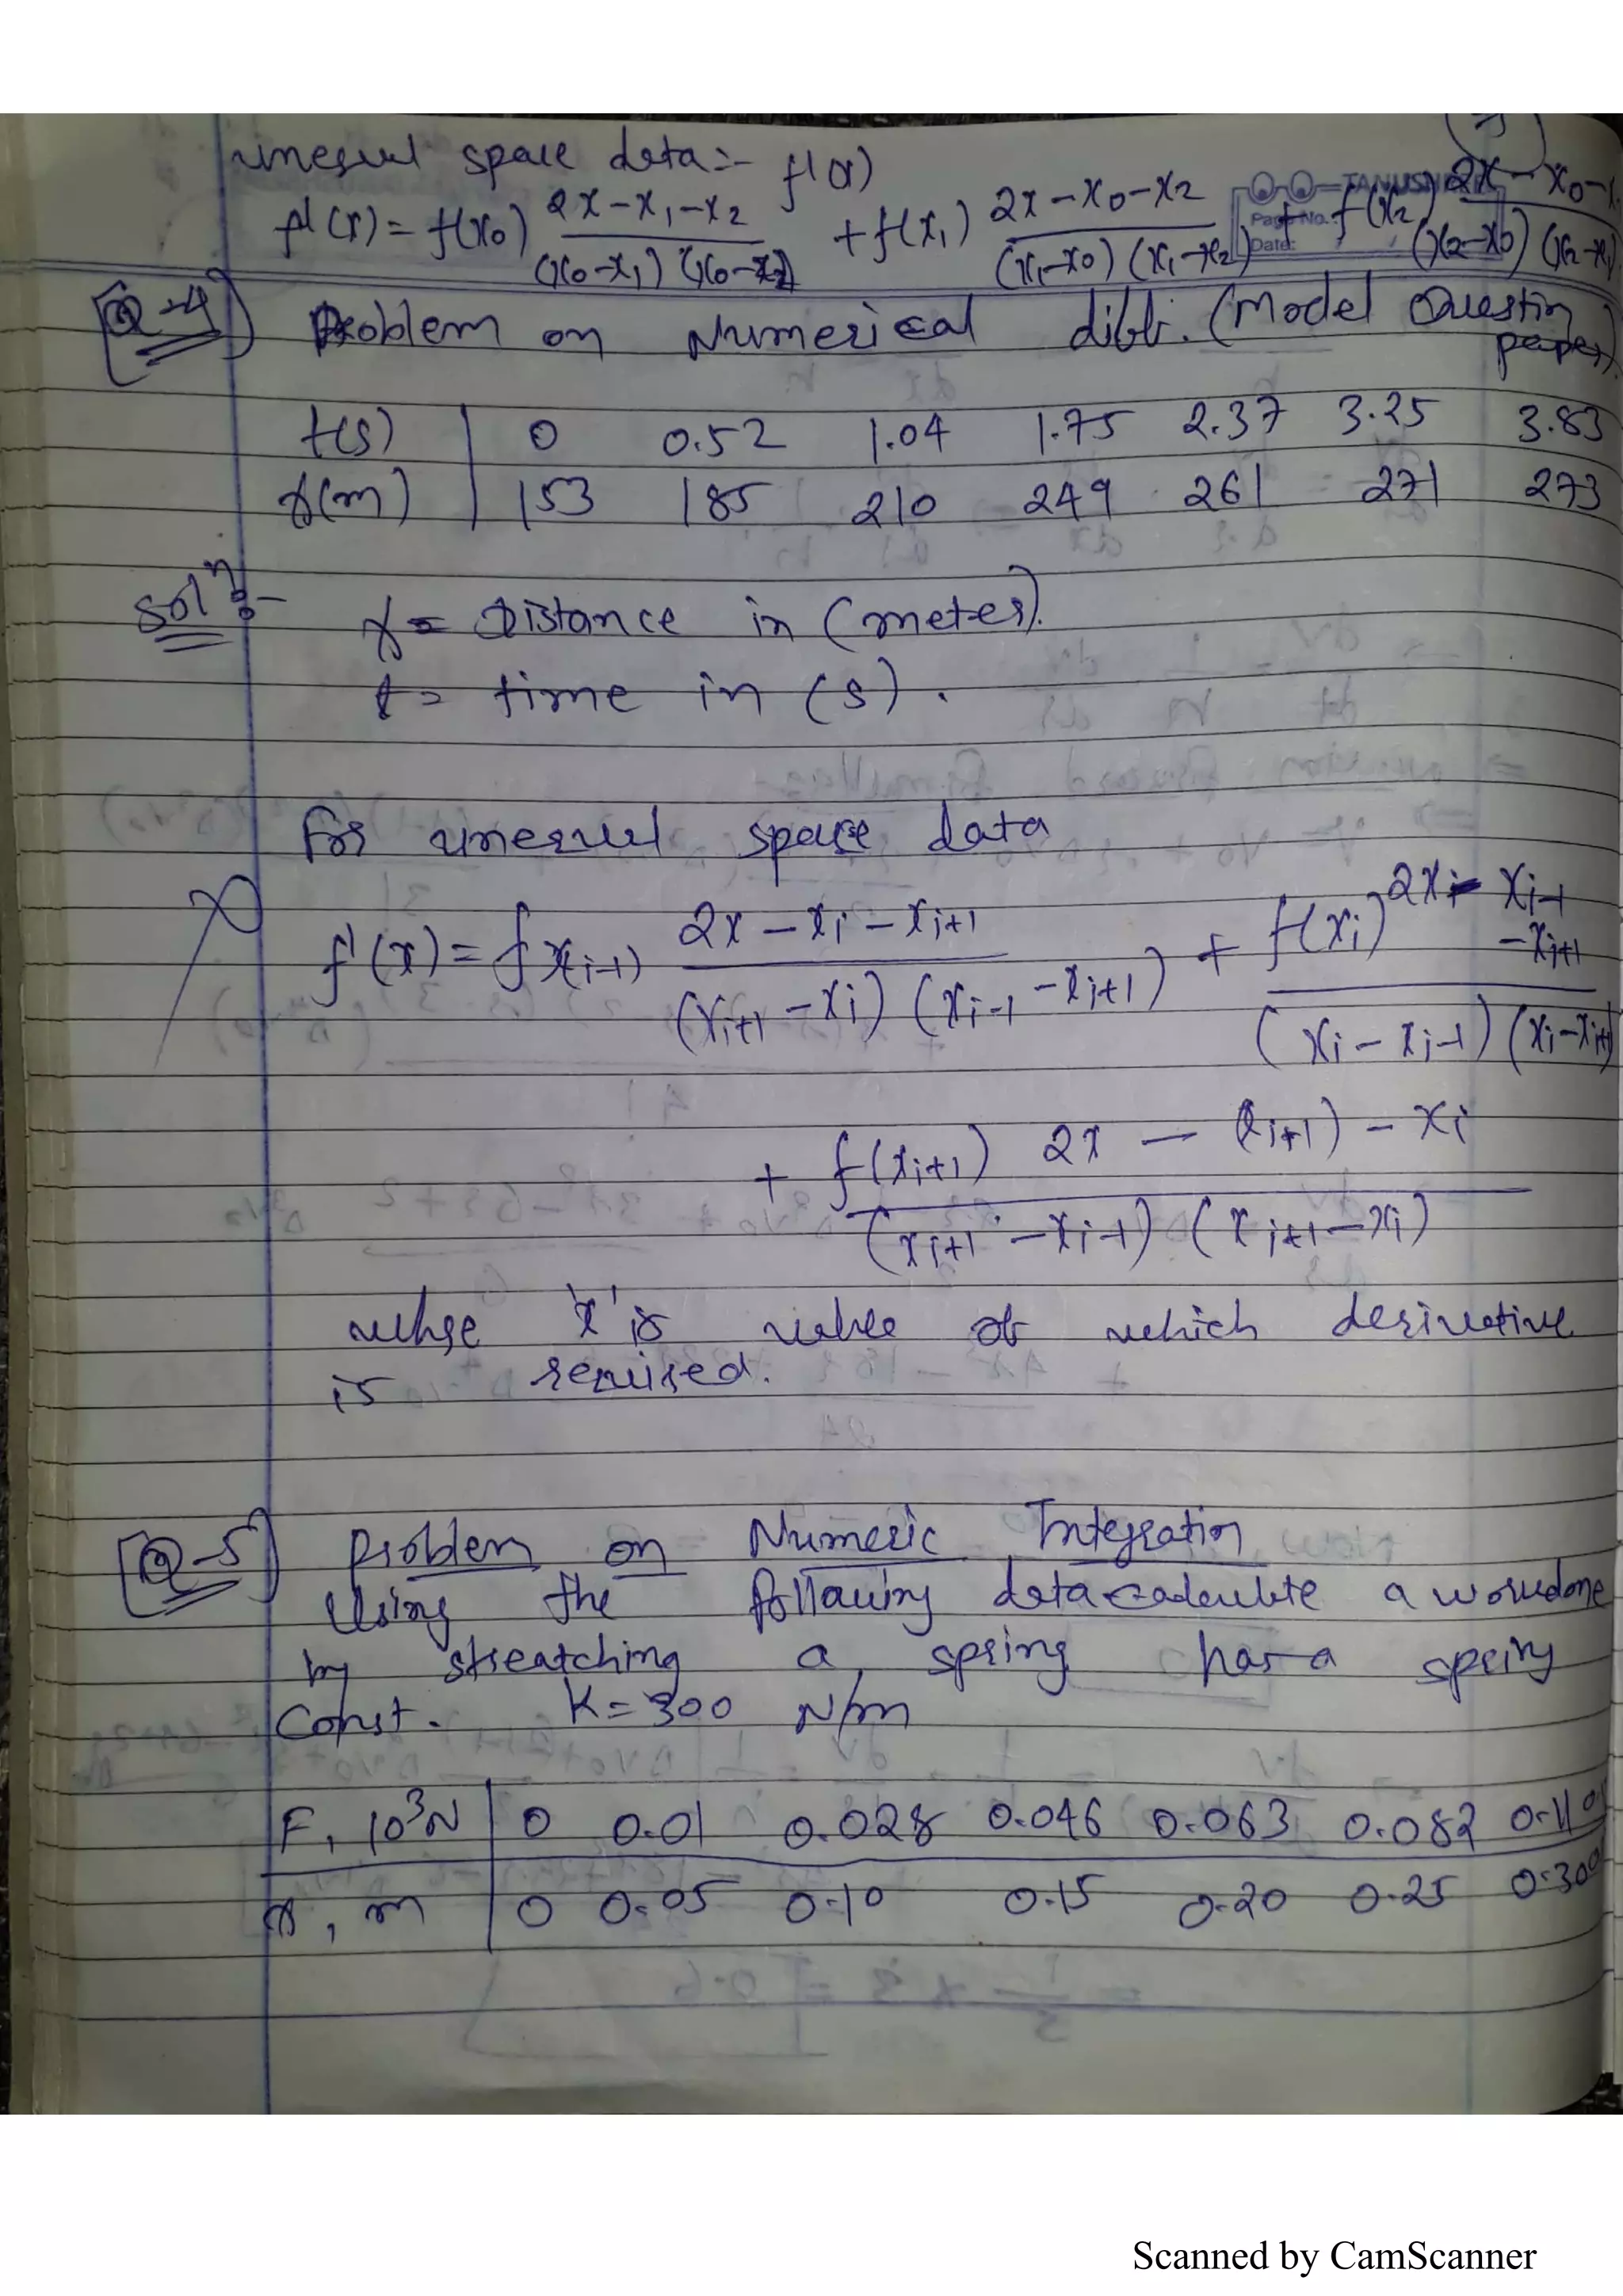 unequal space data:- f'(x)
f'(x) = f(x0) 2x-x1-x2 / (x0-x1) (x0-x2) + f(x1) 2x-x0-x2 / (x1-x0) (x1-x2) + f(x2) 2x-x0-x1 / (x2-x0) (x2-x1)
Page No.
Date:
Q-4) Problem on Numerical diff. (Model Question paper)
t(s) | 0 0.52 1.04 1.75 2.37 3.25 3.83
x(m) | 153 185 210 249 261 271 273
Soln:- x = Distance in (meter).
t = time in (s).
For unequal space data
f'(x) = f(xi-1) 2x - xi - xi+1 / (xi+1 - xi) (xi-1 - xi+1) + f(xi) 2xi - xi-1 - xi+1 / (xi - xi-1) (xi - xi+1)
+ f(xi+1) 2x - (xi+1) - xi / (xi+1 - xi-1) (xi+1 - xi)
whse 'x' is value at which derivative
is required.
Q-5) Problem on Numeric Integration
Using the following data calculate a workdone
by streatching a spring has a spring
Const. K = 300 N/m
F, 10^3 N | 0 0.01 0.028 0.046 0.063 0.082 0.110
x, m | 0 0.05 0.10 0.15 0.20 0.25 0.300
Scanned by CamScanner